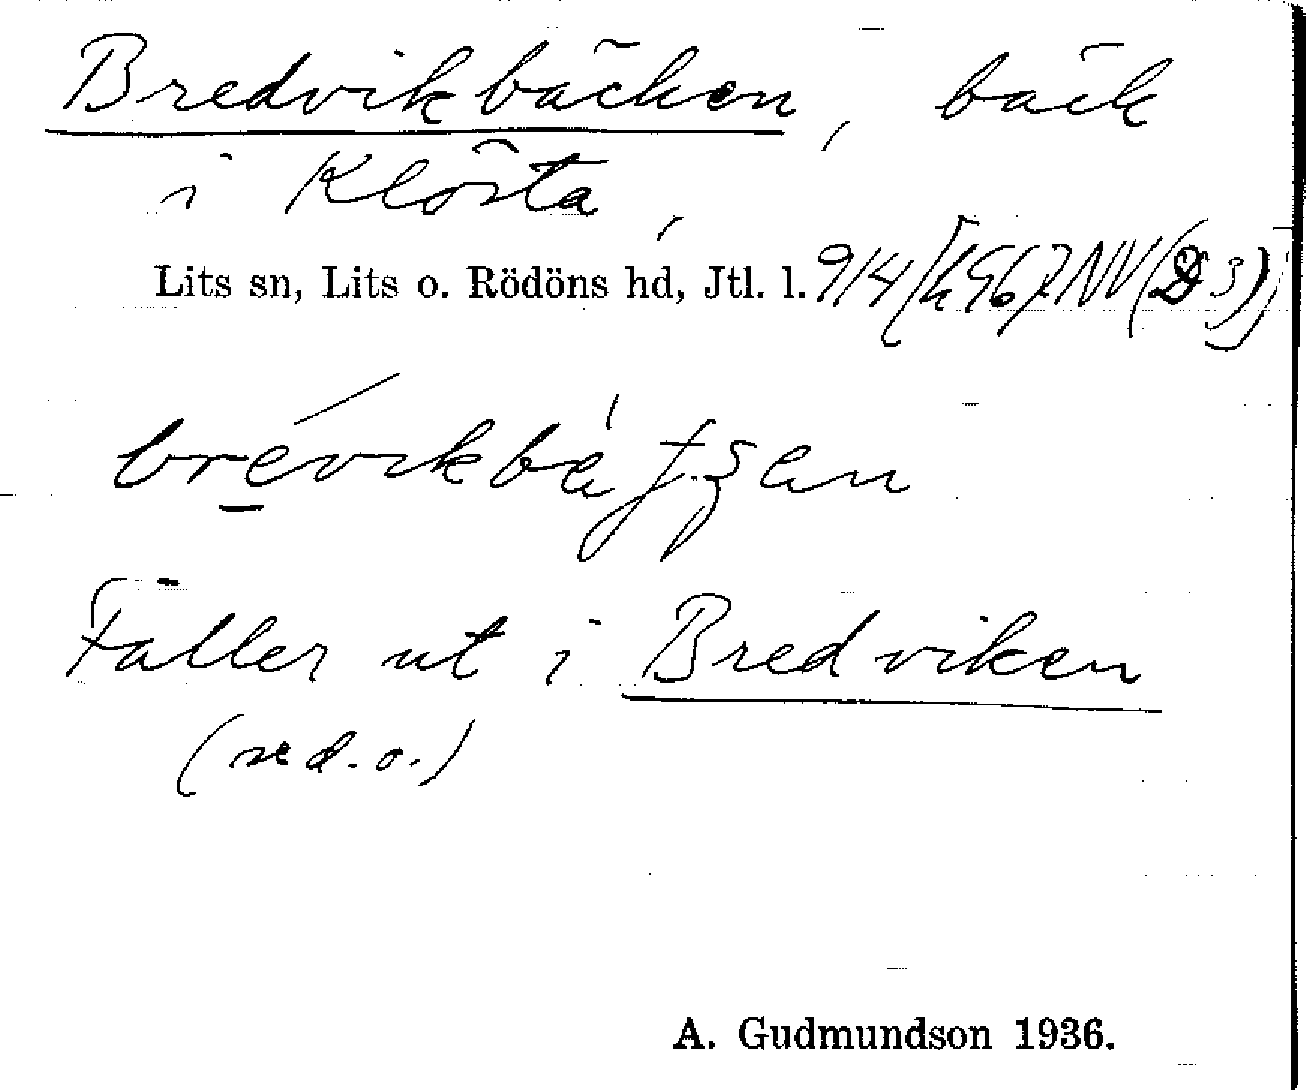 Bredvikbäcken, bäck
i Klösta,
Lits sn, Lits o. Rödöns hd, Jtl. l.
Faller ut i Bredviken
(se d. o.)
A. Gudmundson 1936.